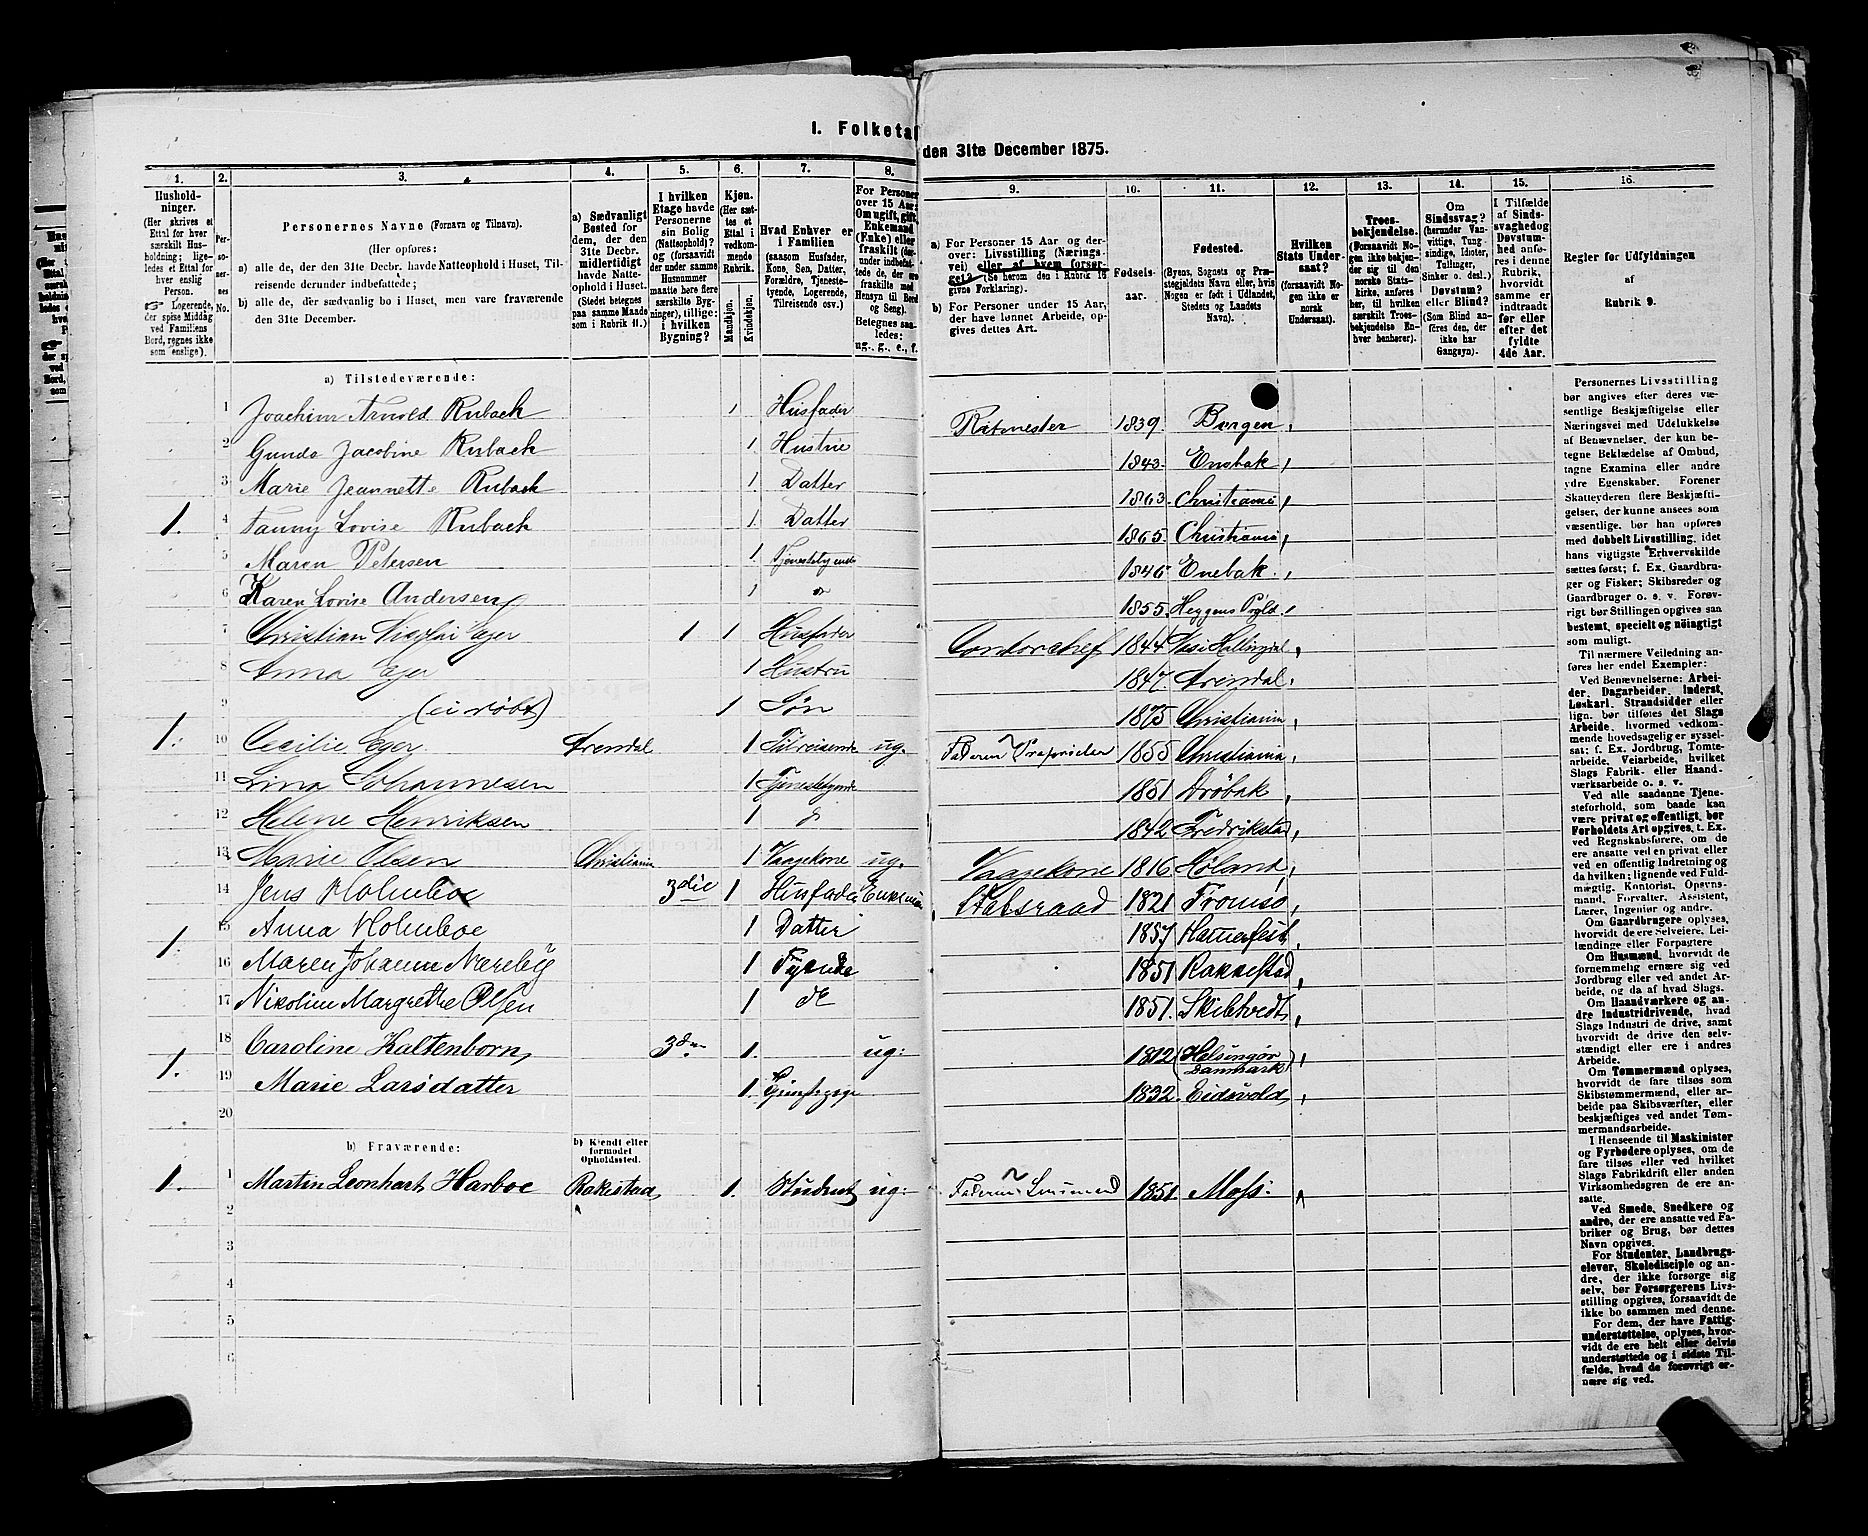 I. Folketal
den 31te December 1875.
1.
2.
3.
4.
5.
6.
7.
8.
9.
10.
11.
12.
13.
14.
15.
16.
Hushold-
ninger.
(Her skrives et
Ettal for hver
særskilt Hus-
holdning; lige-
ledes et Ettal for
hver enslig
Person.
☞ Logerende,
der spise Middag
ved Familiens
Bord, regnes ikke
som enslige).
Per-
soner-
nes
No.
Personernes Navne (Fornavn og Tilnavn).
(Her opføres:
a) alle de, der den 31te Decbr. havde Natteophold i Huset, Til-
reisende derunder indbefattede;
b) alle de, der sædvanlig bo i Huset, men vare fraværende
den 31te December.
a) Sædvanligt
Bosted for
dem, der den
31te Decbr.
midlertidigt
havde Natte-
ophold i Huset.
(Stedet betegnes
paa samme Maade
som i Rubrik 11.)
I hvilken
Etage havde
Personerne
sin Bolig
(Natteophold)?
og (forsaavidt
der under samme
Husnummer
maatte høre flere
særskilte Byg-
ninger), tillige:
i hvilken
Bygning?
Kjøn.
(Her sæt-
tes et
Ettal i
vedkom-
mende
Rubrik.
Mandkjøn.
Kvindekjøn.
Hvad Enhver er
i Familien
(saasom Husfader,
Kone, Søn, Datter,
Forældre, Tjeneste-
tyende, Logerende,
Tilreisende osv.)
For Personer
over 15 Aar:
Om ugift, gift,
Enkemand
(Enke) eller
fraskilt (der-
under indbefat-
tede de, der ere
fraskilte med
Hensyn til Bord
og Seng).
Betegnes saa-
ledes:
ug., g., e., f.
a) For Personer 15 Aar og der-
over: Livsstilling (Nærings-
vei) eller af hvem forsør-
get? (Se herom den i Rubrik 16
givne Forklaring).
b) For Personer under 15 Aar,
der have lønnet Arbeide, op-
gives dettes Art.
Fødsels-
aar.
Fødested.
(Byens, Sognets og Præ-
stegjeldets Navn eller, hvis
Nogen er født i Udlandet,
Stedets og Landets
Navn).
Hvilken
Stats Under-
saat?
(forsaavidt No-
gen ikke er
norsk
Undersaat).
Troes-
bekjendelse.
(Forsaavidt No-
gen ikke bekjen-
der sig til den
norske Stats-
kirke, anføres
her, til hvilken
særskilt Troes-
bekjendelse En-
hver henhører).
Om
Sindssvag?
(herunder Van-
vittige, Tung-
sindige, Idioter,
Tullinger,
Sinker o. desl.)
Døvstum?
eller Blind?
(Som Blind an-
føres den, der
ikke har
Gangsyn).
I Tilfælde
af Sinds-
svaghed og
Døvstum-
hed anfø-
res i denne
Rubrik,
hvorvidt
samme er
indtraadt
før eller
efter det
fyldte
4de Aar.
Regler for Udfyldningen
af
Rubrik 9.
a) Tilstedeværende:
1 Joachim Arnold Rubach 1 Husfader Ritmester 1839. Bergen
2 Gunda Jacobine Rubach 1. Hustrue 1843. Enebak
3 Marie Jeannette Rubach 1. Datter 1863. Christiania
1. 4 Fanny Lovise Rubach 1. Datter 1865. Christiania
5 Maren Petersen 1. Tjenestetyende 1846. Enebak.
6 Karen Lovise Andersen 1 do 1855.
7 Christian Nicolai Eger 1 1 Husfader Contorchef 1844 Næs i Hallingdal
8 Anna Eger 1 Hustru 1847. Arendal.
9 (ei døbt) 1 Søn 1875 Christiania
1. 10 Cecilie Eger Arendal 1 Tilreisende ug. Faderen Proprietær 1855 Christiania
11 Lina Johannesen 1 Tjenestetyende 1851 Drøbak
12 Helene Henriksen 1 do 1842 Fredrikstad
13 Marie Olsen Christiania 1 Vaagekone ug. Vaagekone 1816 Høland
14 Jens Holmboe 3die 1 Husfader Enkemand Statsraad 1821 Tromsø
15 Anna Holmboe 1 Datter 1857 Hamerfest
1. 16 Maren Johanne Næreby 1 Tyende 1851 Rakkestad
17 Nikoline Margrethe Olsen 1 do 1851. Skibtvedt
18 Caroline Kaltenborn 3die 1. ug: 1812 (Helsingør
Danmark)
1. 19 Marie Larsdatter 1. 1832. Eidsvold
20
b) Fraværende:
b) Kjendt eller
formodet
Opholdssted.
1. 1 Martin Leonhart Harboe Rakkestad 1. Student ug: Faderen 1851. Moss.
2
3
4
5
6
Personernes Livsstilling
bør angives efter deres væ-
sentlige Beskjæftigelse eller
Næringsvei med Udelukkelse
af Benævnelser, der kun be-
tegne Beklædelse af Ombud,
tagne Examina eller andre
ydre Egenskaber. Forener
Skatteyderen flere Beskjæfti-
gelser, der kunne ansees som
væsentlige, bør han opføres
med dobbelt Livsstilling, idet
hans vigtigste Erhvervskilde
sættes først; f. Ex. Gaardbru-
ger og Fisker; Skibsreder og
Gaardbruger o. s. v. Forøv-
rigt bør Stillingen opgives saa
bestemt, specielt og nøiagtigt
som muligt.
Til nærmere Veiledning an-
føres her endel Exempler:
Ved Benævnelserne: Arbei-
der, Dagarbeider, Inderst,
Løskarl, Strandsidder eller
lign. bør tilføies det Slags
Arbeide, hvormed vedkom-
mende hovedsagelig er syssel-
sat; f. Ex. Jordbrug, Tomte-
arbeide, Veiarbeide, hvilket
Slags Fabrik- eller Haand-
værksarbeide o. s. v.
Ved alle saadanne Tjene-
steforhold, som baade kan
være privat og offentligt, bør
Forholdets Art opgives, t. Ex.
ved Regnskabsførere, om de
ere ansatte ved en privat eller
ved en offentlig Indretning og
da hvilken; lignende ved Fuld-
mægtig, Kontorist, Opsyns-
mand, Forvalter, Assistent,
Lærer, Ingeniør og andre.
Om Gaardbrugere oplyses,
hvorvidt de ere Selveiere, Lei-
lændinge eller Forpagtere
Om Husmænd, hvorvidt de
fornemmelig ernære sig ved
Jordbrug eller ved andet Ar-
beide, og da af hvad Slags.
Om Haandværkere og an-
dre Industridrivende, hvad
Slags Industri de drive, samt
hvorvidt de drive den selv-
stændigt eller ere i andres
Arbeide.
Om Tømmermænd oplyses,
hvorvidt de fare tilsøs som
Skibstømmermænd, eller ar-
beide paa Skibsværfter, eller
beskjæftiges ved andet Tøm-
mermandsarbeide.
I Henseende til Maskinister
og Fyrbødere oplyses, om de
fare tilsøs eller ved hvilket
Slags Fabrikdrift eller anden
Virksomhedsgren de ere an-
satte.
Ved Smede, Snedkere og
andre, der ere ansatte ved Fa-
briker og Brug, bør dettes
Navn opgives.
For Studenter, Landbrugs-
elever, Skoledisciple og an-
dre, der ikke forsørge sig
selv, bør Forsørgerens Livs-
stilling opgives, forsaavidt de
ikke bo sammen med denne.
For dem, der have Fattig-
understøttelse, oplyses, hvor-
vidt de ere helt eller delvis
understøttede og i sidste Til-
fælde, hvad de forøvrigt er-
nære sig ved.